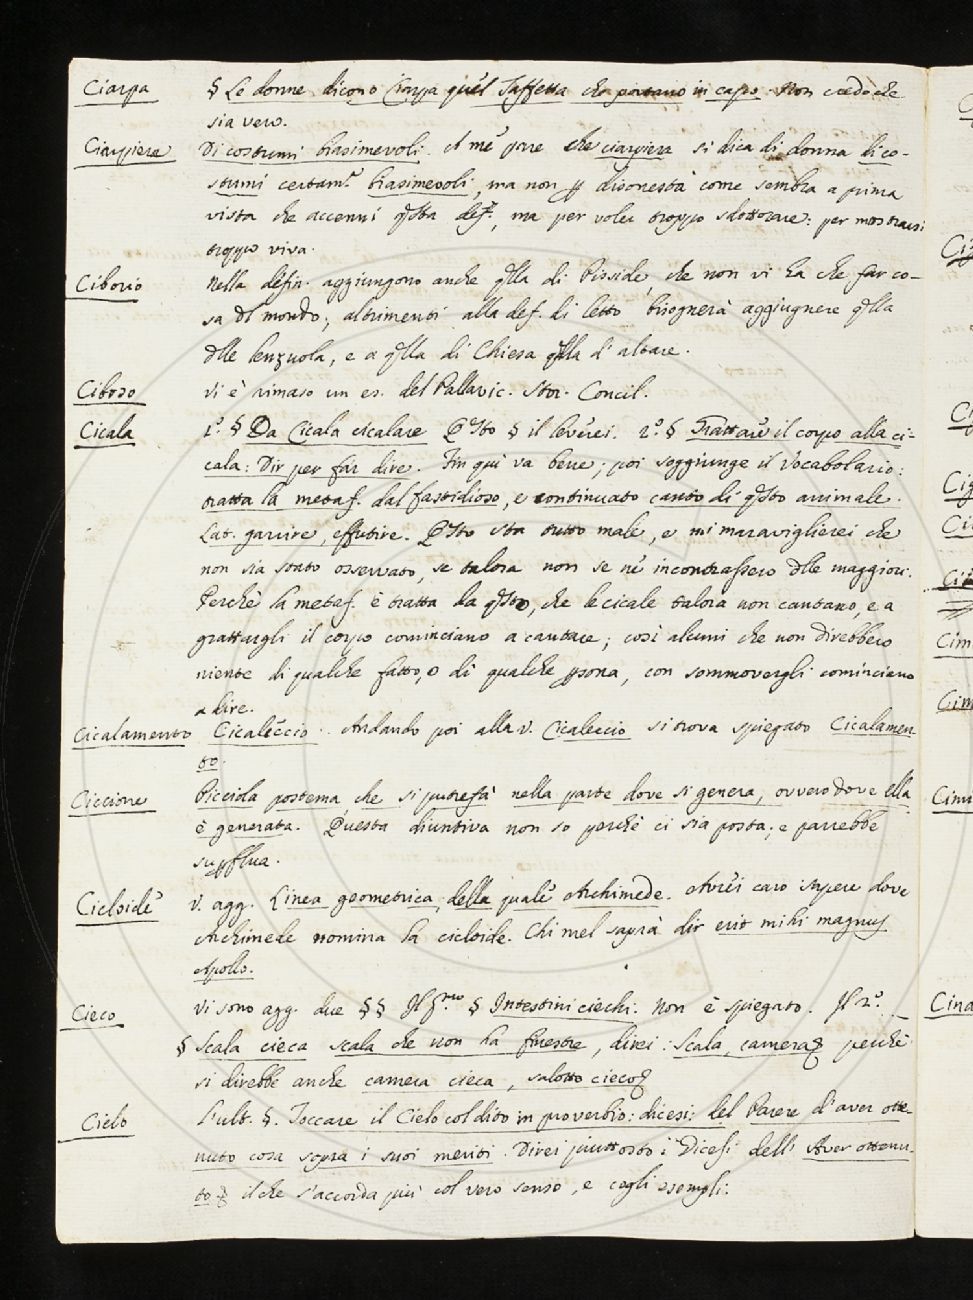 Ciarpa § Le donne dicono Ciarpa quel Taffettà che portano in capo. Non credo che
sia vero.
Ciarpiera Di costumi biasimevoli. A me pare che ciarpiera si dica di donna di co-
stumi certam.e biasimevoli, ma non p disonestà come sembra a prima
vista che accenni qsta def.e, ma per voler troppo sdottorare: per mostrarsi
troppo viva.
Ciborio Nella defin. aggiungono anche qlla di Pisside, che non vi ha che far co-
sa dl mondo; altrimenti alla def. di letto bisognerà aggiugnere qlla
dlle lenzuola, e a qlla di Chiesa qlla d'altare.
Ciboso Vi è rimaso un es. del Pallavic. Stor. Concil.
Cicala 1.° § Da Cicala cicalare Qsto § il leverei. 2.° § Grattare il corpo alla ci-
cala: Dir per far dire. Fin quì va bene; poi soggiunge il Vocabolario:
tratta la metaf. dal fastidioso, e continuato canto di qsto animale.
Lat. garrire, effutire. Qsto sta tutto male, e mi maraviglierei che
non sia stato osservato, se talora non se ne incontrassero dlle maggiori.
Perchè la metaf. è tratta da qsto, che le cicale talora non cantano, e a
grattargli il corpo cominciano a cantare; così alcuni che non direbbero
niente di qualche fatto, o di qualche psona, con sommovergli cominciano
a dire.
Cicalamento Cicaleccio. Andando poi alla v. Cicaleccio si trova spiegato Cicalamen
to.
Ciccione Picciola postema che si putrefà nella parte dove si genera, ovvero dove ella
è generata. Questa diuntiva non so perchè ci sia posta, e parrebbe
supflua.
Cicloide V. agg. Linea geometrica, della quale Archimede. Avrei caro sapere dove
Archimede nomina la cicloide. Chi mel saprà dir erit mihi magnus
Apollo.
Cieco Vi sono agg. due §§ Il pmo § Intestini ciechi. Non è spiegato. Il 2.°
§ Scala cieca scala che non ha finestre, direi: Scala, camera perchè
si direbbe anche camera cieca, salotto cieco
Cielo L'ult. §. Toccare il Cielo col dito in proverbio: dicesi: del Parere d'aver otte-
nuto cosa sopra i suoi meriti. Direi piuttosto: Dicesi dell' Aver ottenu-
to il che s'accorda più col vero senso, e cogli esempli: